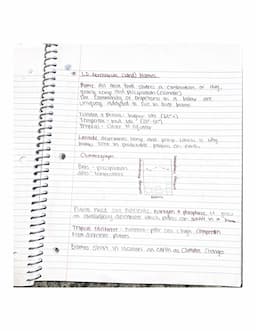 1.2 Terrestrial (land) Biomes
Biome: An area that shares a combination of avg.
yearly temp and precipitation (climate)
The community of organisms in a biome are
uniquely adapted to live in that biome
Tundra & Boreal: higher lats (60°+)
Temperate: mid lats (30°-60°)
Tropical: closer to equator
Latitude determines temp and precip which is why
biomes exist in predictable pattern on earth
Climatogram
Bars - precipitation
Line - temperature
Plants need soil nutrients,
nitrogen & phosphorus, to grow
so availability determines which plants can in a
Tropical rainforest: nutrient poor soil (high competition
from different plants)
Biomes shift in location on earth as climate changes